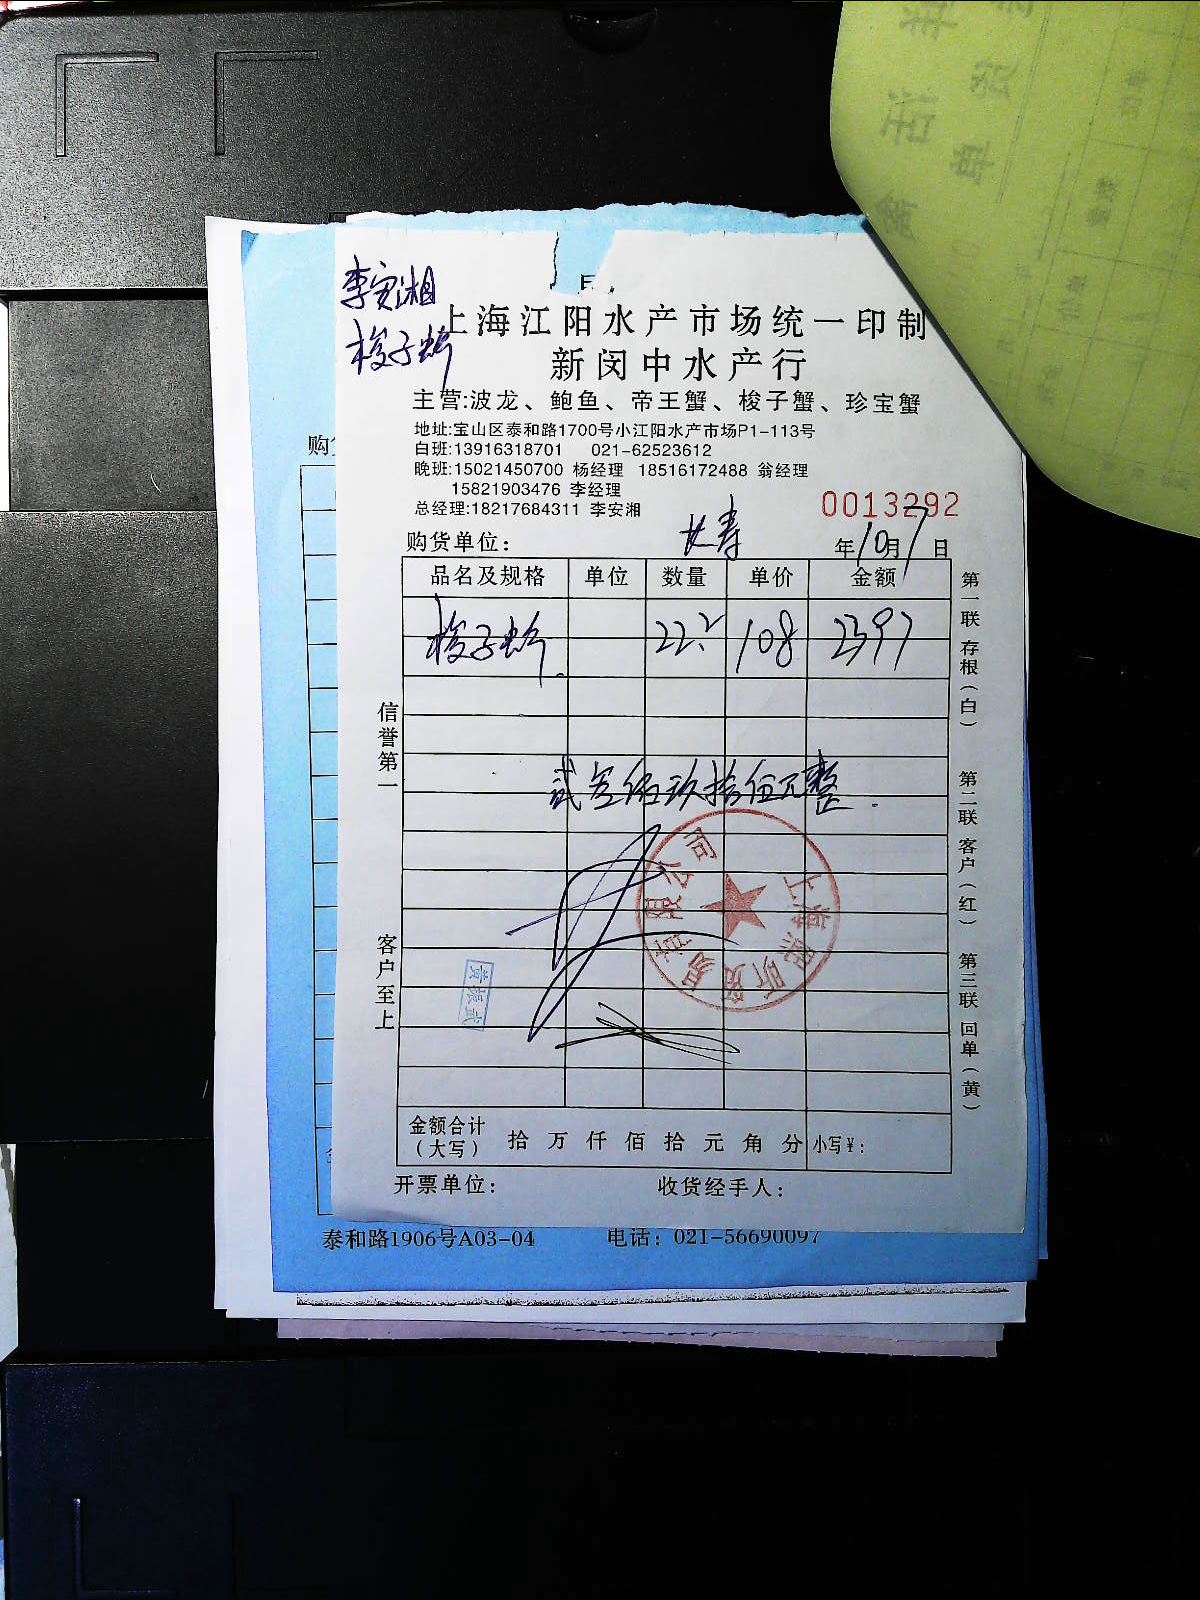 李安湘
梭子蟹
上海江阳水产市场统一印制
新闵中水产行
主营:波龙、鲍鱼、帝王蟹、梭子蟹、珍宝蟹
地址:宝山区泰和路1700号小江阳水产市场P1-113号
白班:13916318701 021-62523612
晚班:15021450700 杨经理 18516172488 翁经理
15821903476 李经理
总经理:18217684311 李安湘
0013292
购货单位: 长寿 年10月7日
品名及规格 单位 数量 单价 金额
梭子蟹 22.2 108 2397
贰 佰玖拾伍元整
上海熙昕贸易有限公司
黄振武
金额合计
(大写) 拾 万 仟 佰 拾 元 角 分 小写¥:
开票单位: 收货经手人:
信誉第一 客户至上
第一联 存根(白) 第二联 客户(红) 第三联 回单(黄)
购
泰和路1906号A03-04 电话: 021-56690097